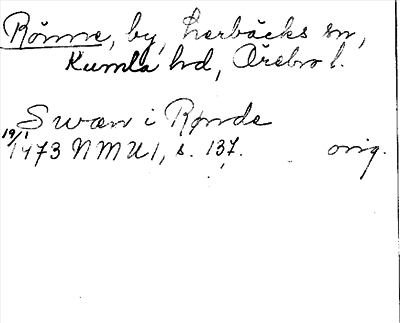 Rönne, by, Lerbäcks sn,
Kumla hd, Örebro l.
Swæn i Rønde
19/1
1473 NMU 1, s. 137. orig.